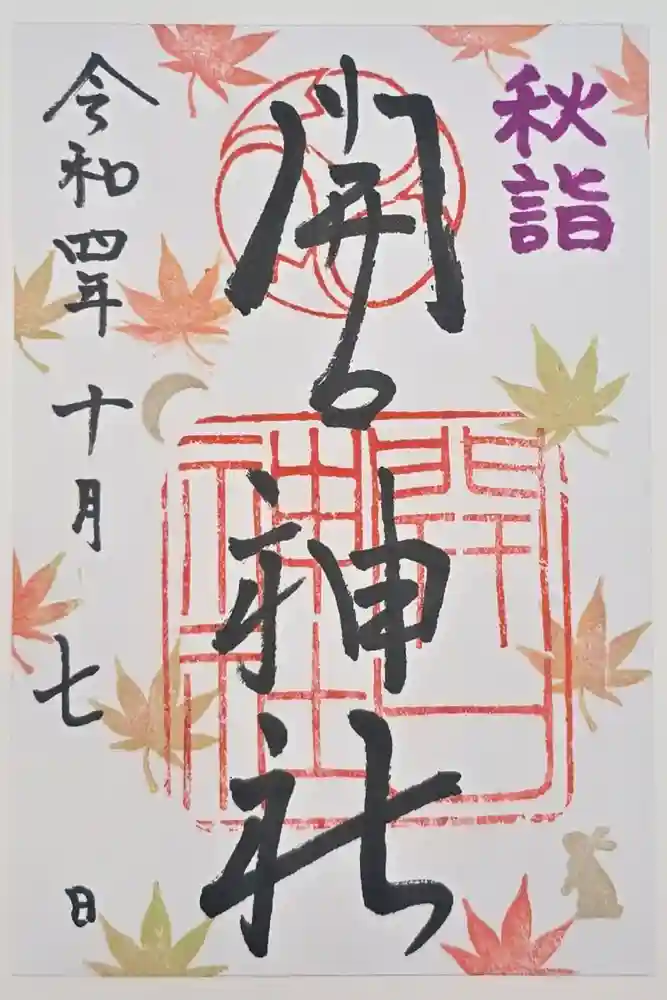 秋詣
開口神社
開口
神社
令和四年十月七日